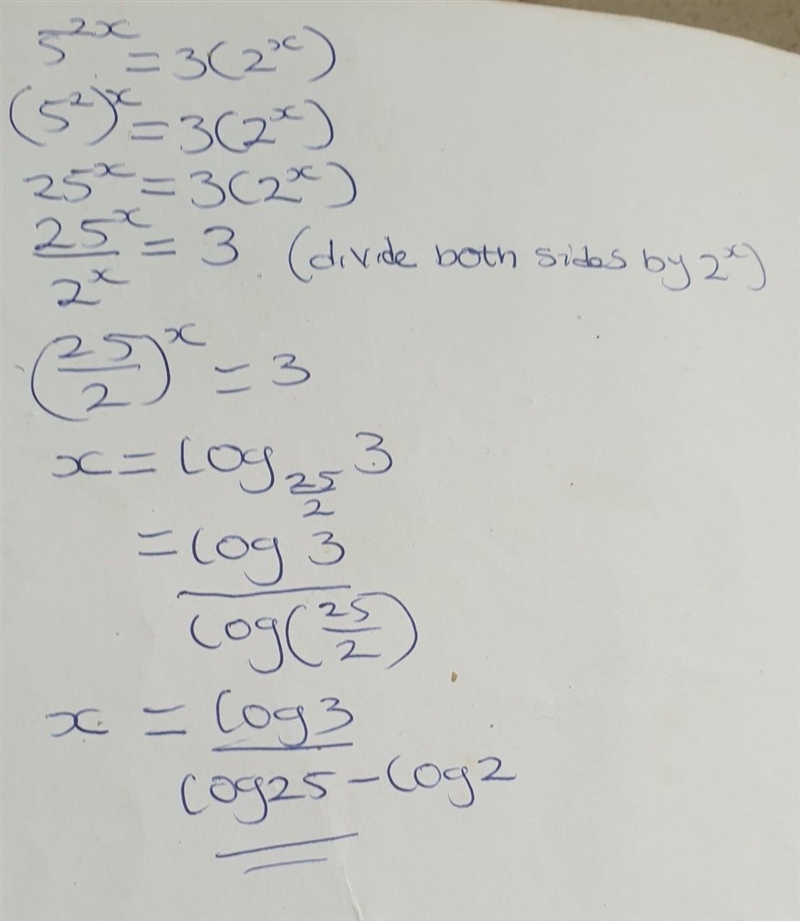 5^2x = 3(2^x)
(5^2)^x = 3(2^x)
25^x = 3(2^x)
25^x/2^x = 3 (divide both sides by 2^x)
(25/2)^x = 3
x = log_25/2 3
= log 3/log(25/2)
x = log3/log25 - log2